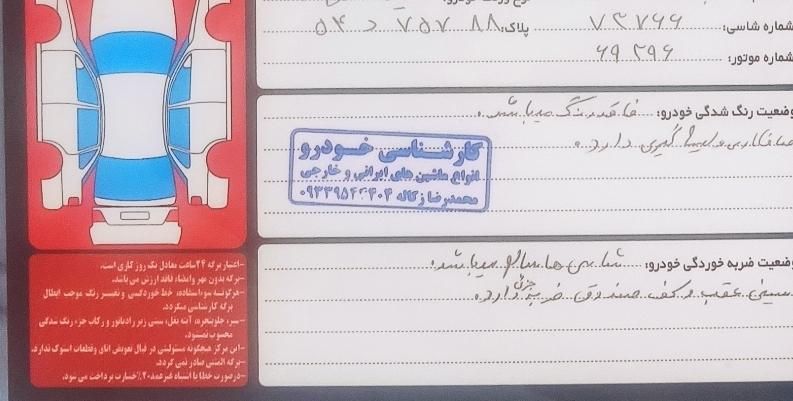 شماره شاسی: ۷۲۷۶۶ پلاک: ۸۸ ۷۵۷ د ۵۴
شماره موتور: ۶۹۲۹۶
وضعیت رنگ شدگی خودرو: فاقد رنگ میباشد.
صافکاری و لیسه گیری دارد.
کارشناسی خودرو
انواع ماشین های ایرانی و خارجی
محمدرضا زکاله
وضعیت ضربه خوردگی خودرو: شاسی ها سالم میباشد.
سینی عقب و کف صندوق ضربه جزئی دارد.
-اعتبار برگه ۲۴ ساعت معادل یک روز کاری است.
-برگه بدون مهر و امضاء فاقد ارزش می باشد.
-هرگونه سوءاستفاده، خط خوردگی و تغییر رنگ موجب ابطال
برگه کارشناسی میگردد.
-سپر، جلوپنجره، آینه بغل، سینی زیر رادیاتور و رکاب جزء رنگ شدگی
محسوب نمیشود.
-این مرکز هیچگونه مسئولیتی در قبال تعویض اتاق وقطعات استوک ندارد.
-برگه المثنی صادر نمی گردد.
-درصورت خطا یا اشتباه غیرعمد ۲۰٪ خسارت پرداخت می شود.